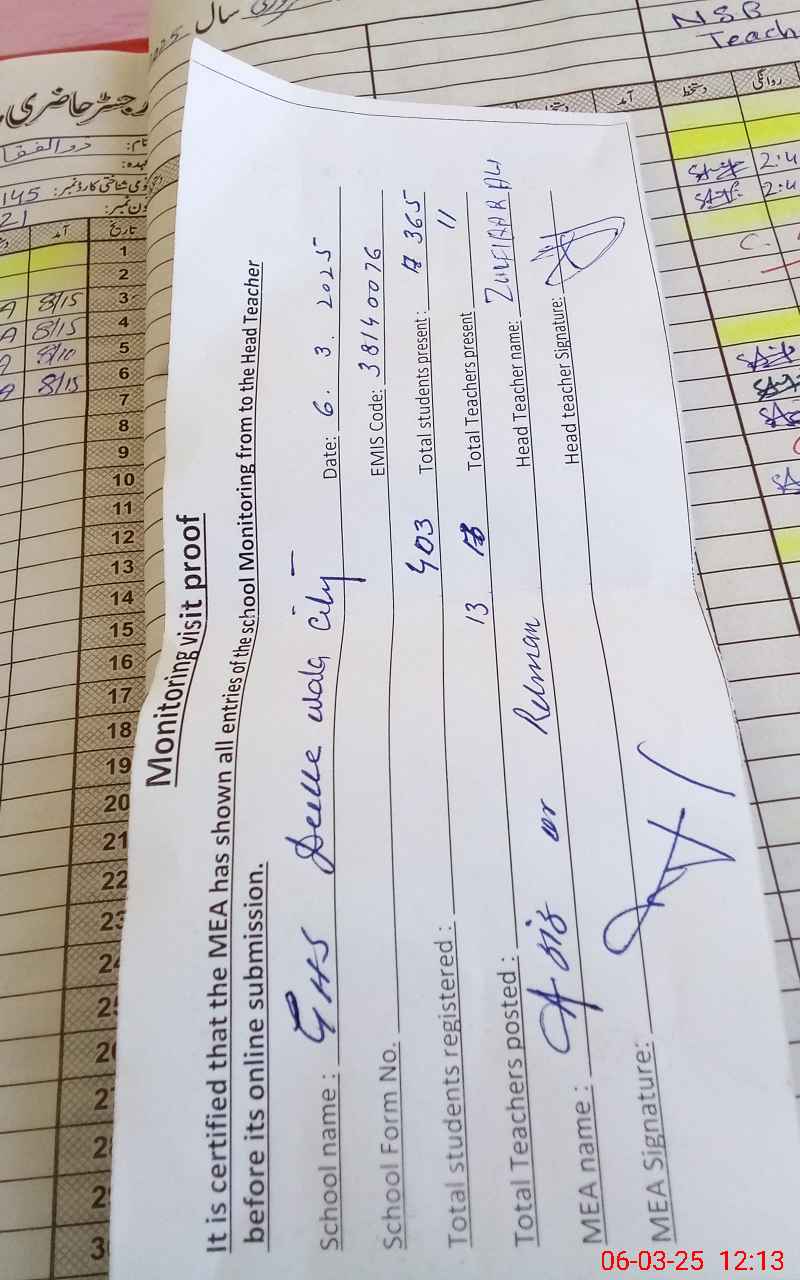 Monitoring visit proof
It is certified that the MEA has shown all entries of the school Monitoring from to the Head Teacher
before its online submission.
School name : GHS Deule wala City Date: 6 . 3 . 2025
School Form No. EMIS Code: 38140076
Total students registered : 403 Total students present : 365
Total Teachers posted : 13 Total Teachers present 11
MEA name : Aziz ur Rehman Head Teacher name: ZULFIQAR ALI
MEA Signature: Head teacher Signature:
سال
2025
NSB
Teach
رجسٹر حاضری
نام: ذوالفقا
عہدہ:
قومی شناختی کارڈ نمبر: 145
فون نمبر: 21
تاریخ
آمد
1
2
3 8/15
4 8/15
5 8/10
6 8/15
7
8
9
10
11
12
13
14
15
16
17
18
19
20
21
22
23
24
25
26
27
28
29
30
آمد
دستخط
روانگی
2:4
2:4
06-03-25 12:13